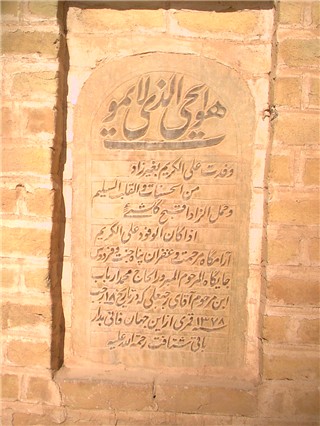 هو الحی الذی لا یموت
وفدت علی الکریم بغیر زاد
من الحسنات و القلب السلیم
و حمل الزاد اقبح کل شیئ
اذا کان الوفود علی الکریم
آرامگاه رحمت و غفران پناه جنت و فردوس
جایگاه المرحوم المبرور الحاج محمد ارباب
ابن مرحوم آقای که در تاریخ ۱۸ رجب
۱۳۷۸ قمری از این جهان فانی بدار
باقی شتافت رحمة الله علیه